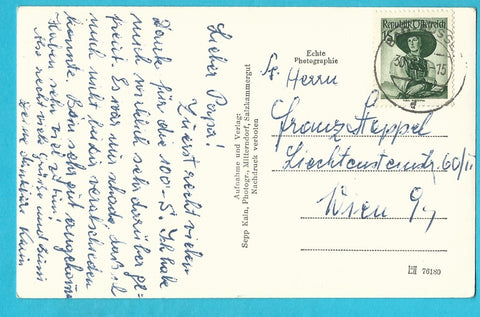 Lieber Papa!
Zuerst recht vielen
Dank für die 100.- S. Ich habe
mich wirklich sehr darüber ge-
freut. Es war nur schade, daß ich
mich nicht bei dir verabschieden
konnte. Bin sehr gut angekommen
haben sehr viel zu tun.
Also recht viele Grüße und Bussi
deine dankbare
Aufnahme und Verlag:
Sepp Kain, Photogr., Mitterndorf, Salzkammergut
Nachdruck verboten
Echte
Photographie
Republik Österreich
30
Herrn
Franz Heppel
Liechtensteinstr. 60/II
Wien 9.,
76180